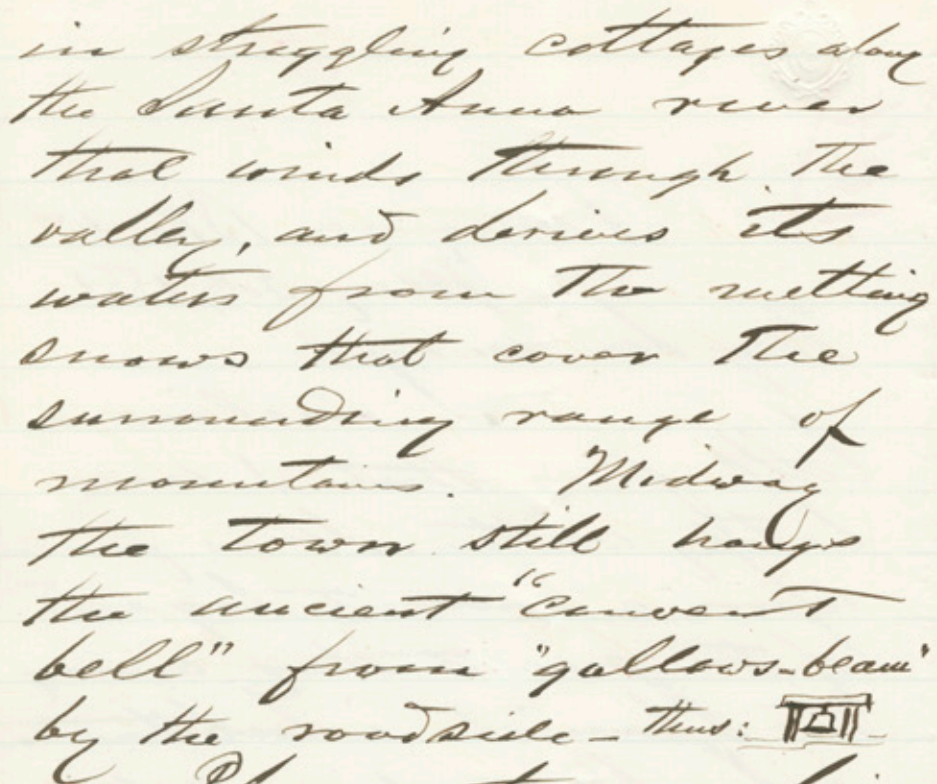 in straggling cottages along
the Santa Anna river
that winds through the
valley, and derives its
waters from the melting
snows that cover the
surrounding range of
mountains. Midway
the town still hangs
the ancient "convent
bell" from "gallows-beam"
by the roadside – thus: